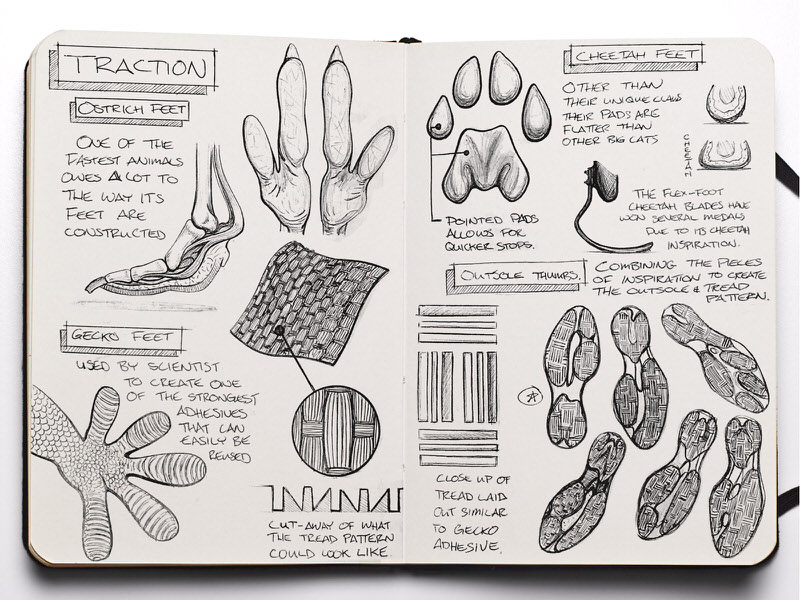 TRACTION
OSTRICH FEET
ONE OF THE
FASTEST ANIMALS
OWES A LOT TO
THE WAY ITS
FEET ARE
CONSTRUCTED
GECKO FEET
USED BY SCIENTIST
TO CREATE ONE
OF THE STRONGEST
ADHESIVES
THAT CAN
EASILY BE
REUSED
CUT-AWAY OF WHAT
THE TREAD PATTERN
COULD LOOK LIKE.
CHEETAH FEET
OTHER THAN
THEIR UNIQUE CLAW
THEIR PADS ARE
FLATTER THAN
OTHER BIG CATS
CHEETAH
POINTED PADS
ALLOWS FOR
QUICKER STOPS.
THE FLEX-FOOT
CHEETAH BLADES HAVE
WON SEVERAL MEDALS
DUE TO ITS CHEETAH
INSPIRATION.
OUTSOLE THUMBS.
COMBINING THE PIECES
OF INSPIRATION TO CREATE
THE OUTSOLE & TREAD
PATTERN.
CLOSE UP OF
TREAD LAID
OUT SIMILAR
TO GECKO
ADHESIVE.